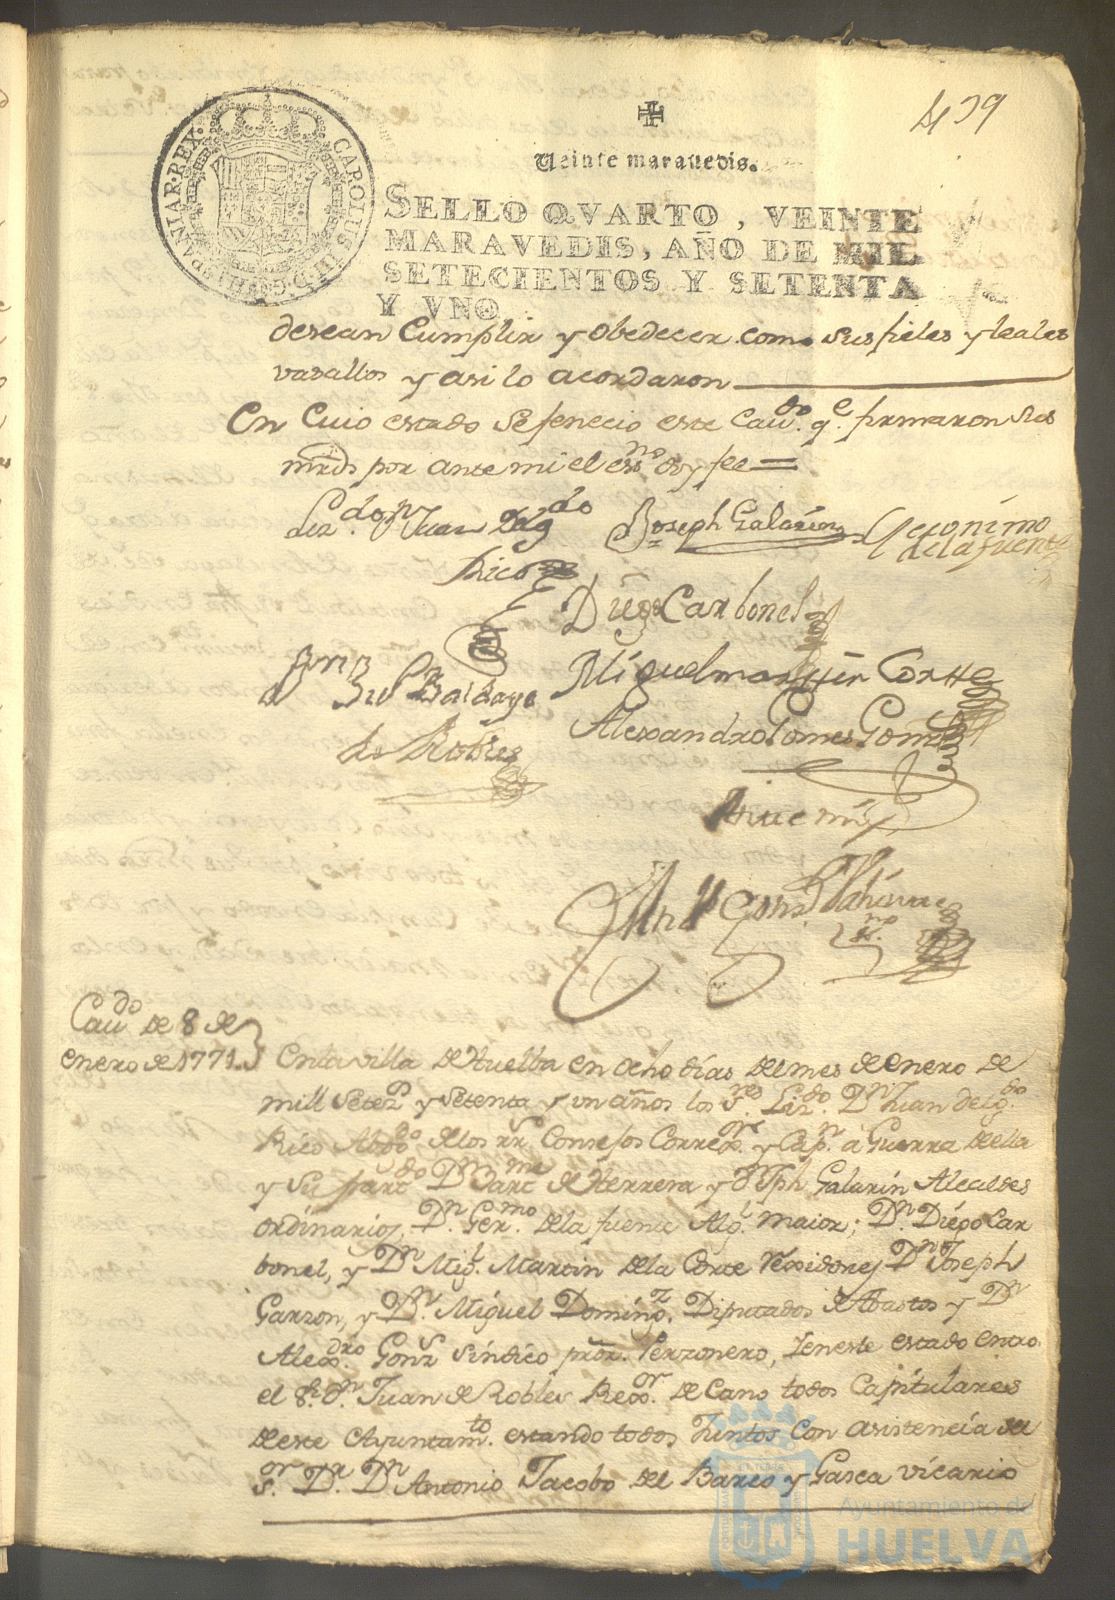 439
Veinte maravedis.
CAROLUS III D.G. HISPANIAR. REX
SELLO QVARTO, VEINTE
MARAVEDIS, AÑO DE MIL
SETECIENTOS Y SETENTA
Y VNO.
desean Cumplir y obedecer como sus fieles y leales
vasallos y asi lo acordaron
En Cuio estado se fenecio este Cavdo. qe. firmaron sus
mrds por ante mi el essno doy fee =
Lizdo. Dn Juan Delgdo
Rico
Joseph Galarin
Geronimo
de la fuente
Diego Carbonel
Miguel martin Cortte
Baldayo
de Robles
Alexandro Gomes
Ante mi
Cavdo de 8 de
enero de 1771.
En la villa de Huelba en ocho dias del mes de enero de
mill setezs y setenta y un años los Sres Lizdo. Dn Juan Delgdo
Rico Abogdo de los rrs Consejos Correxor. y Capn. a Guerra de ella
y su partdo Dn Bartme de Herrera y Dn Jph Galarin Alcaldes
ordinarios, Dn. Germo de la fuente Algl maior; Dn. Diego Car
bonel, y Dn Migl. Martin de la Corte Rexidores Dn Joseph
Garzon, y Dn. Miguel Domingz. Diputados de Abastos y Dn
Alexdro. Gonzs sindico pror. Perzonero, y en este estado entro
el Sr. Dn Juan de Robles Rexor. de Cano todos Capitulares
de este Ayuntamto. estando todos Juntos con asistencia del
sor. Dr. Dn Antonio Jacobo del Barco y Gasca vicario
Ayuntamiento de
HUELVA